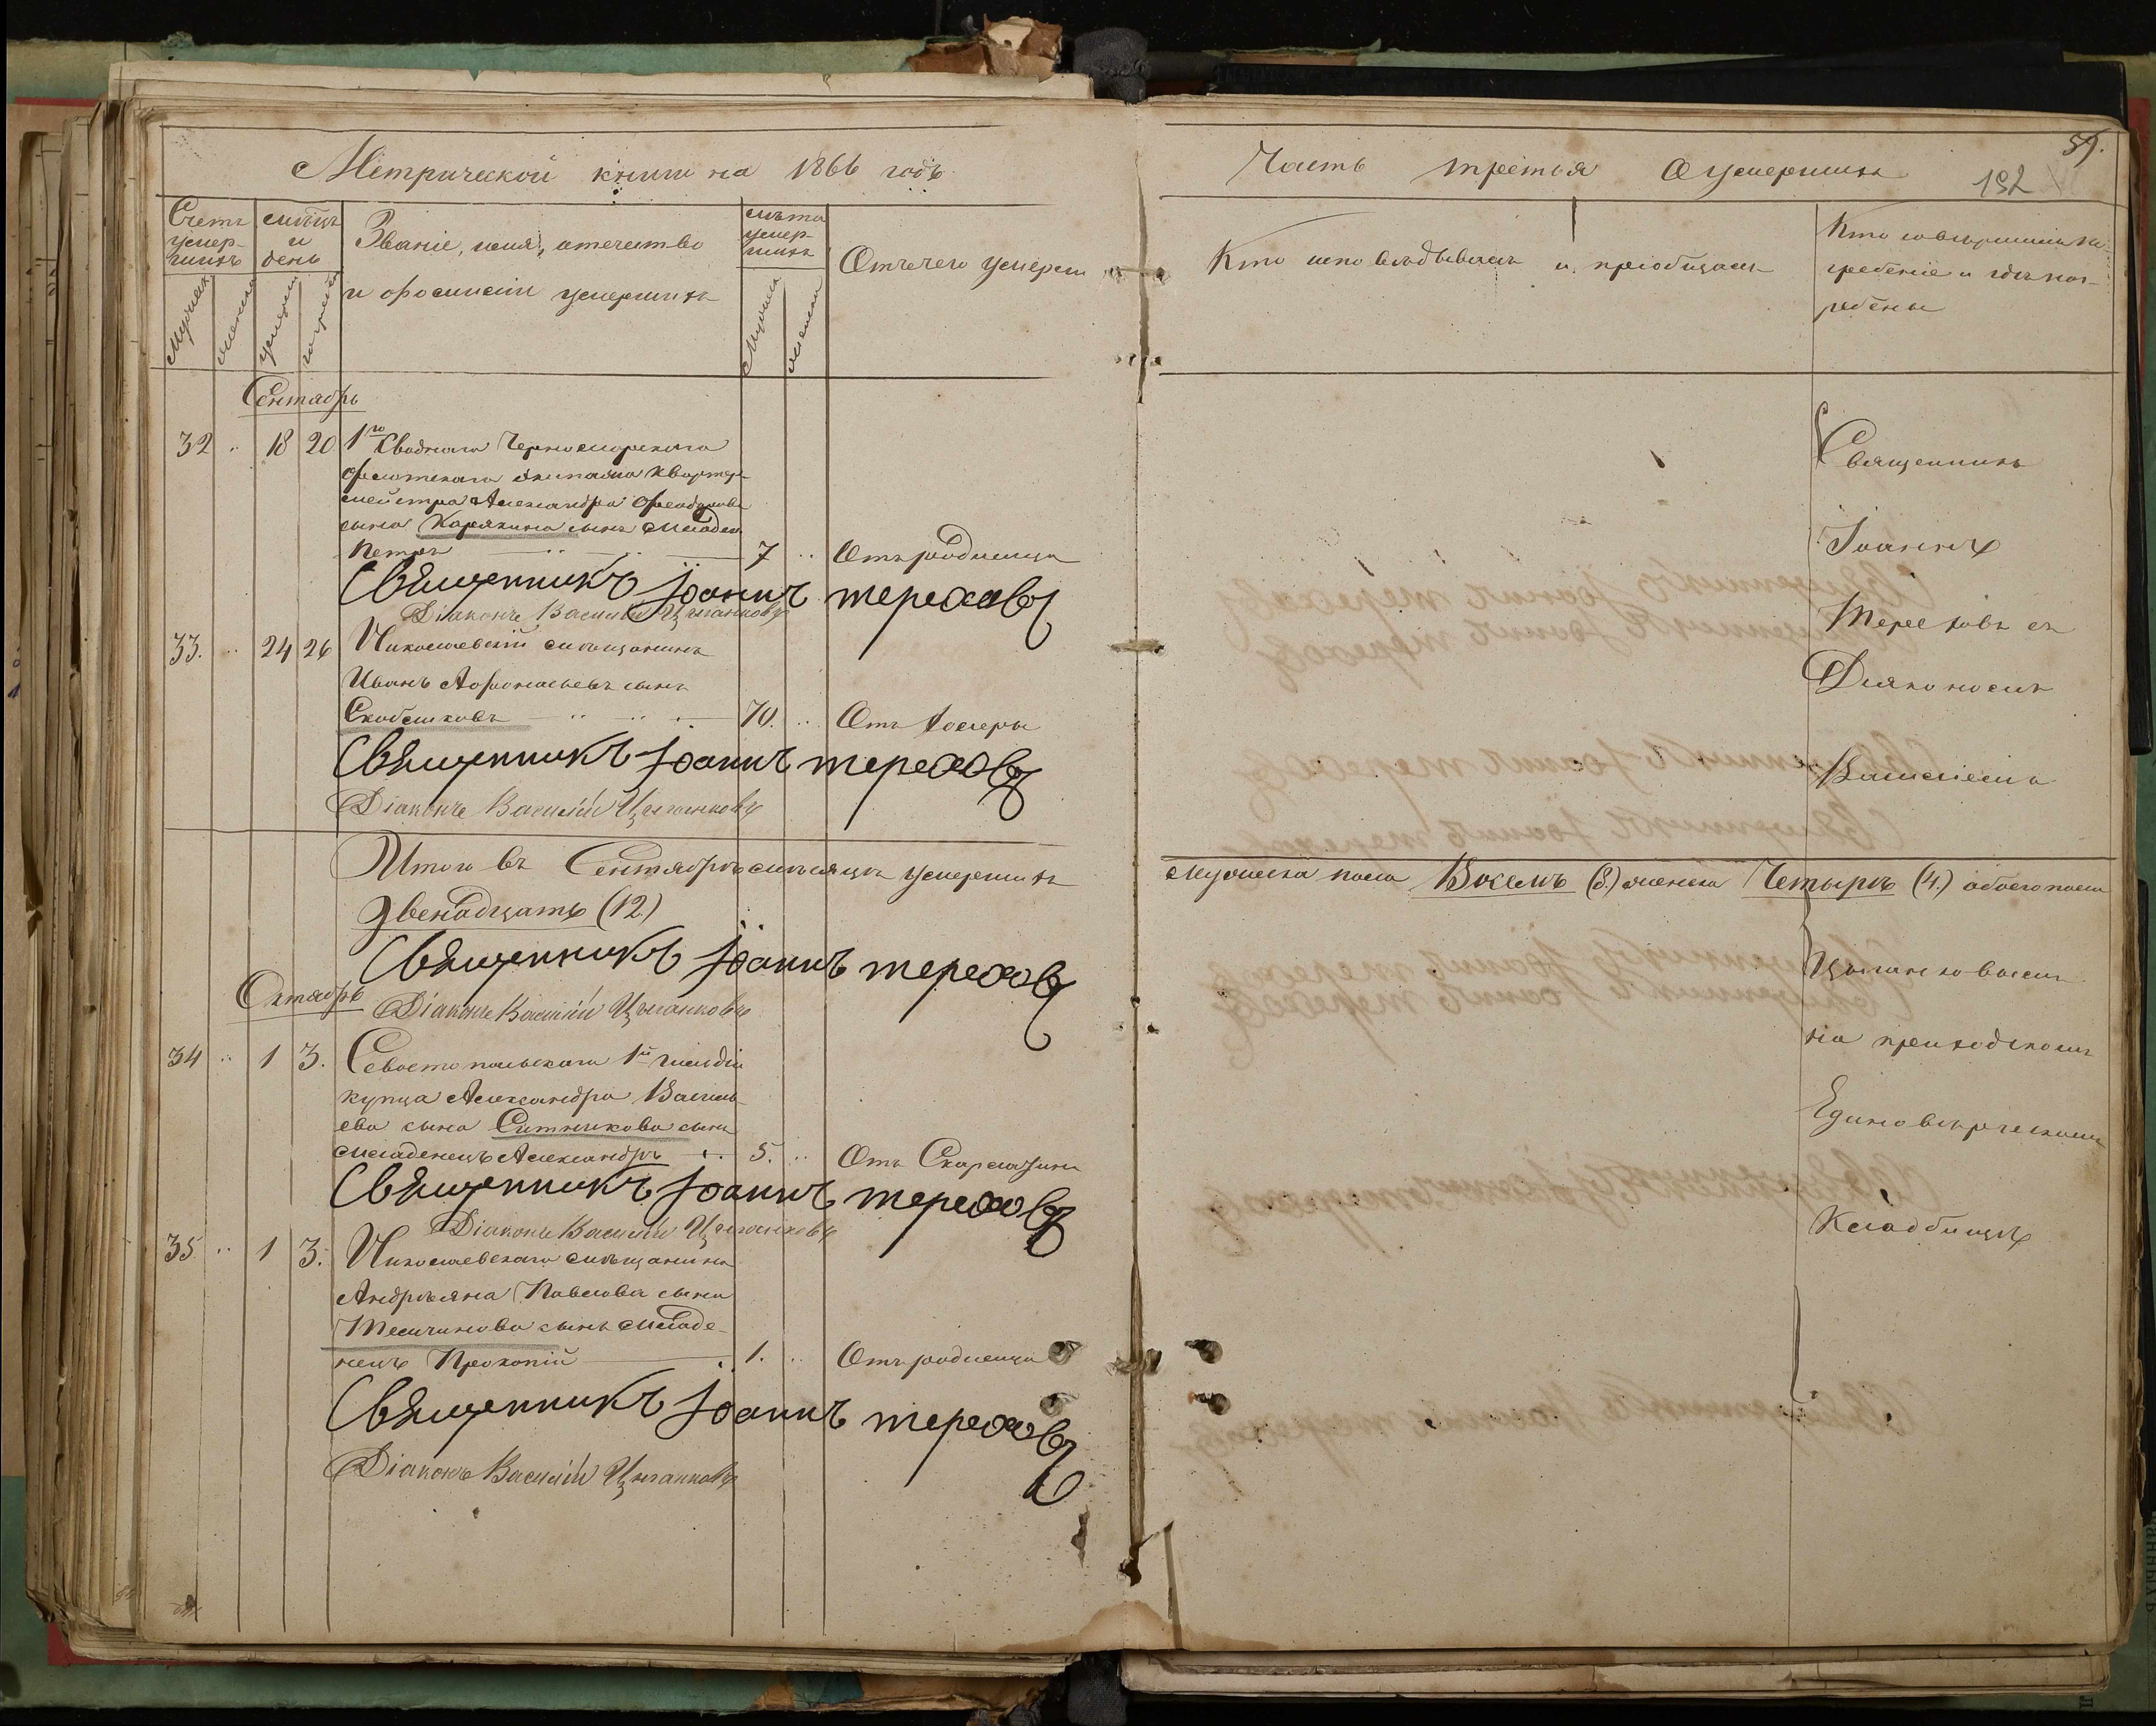 Метрической книги на 1866 годъ
Счетъ умер-шихъ
Мужеска
женска
мѣсяцъ и день
умерших
погребен
Званіе, имя, отечество
и фамилія умершихъ
лѣта умер-шихъ
Мужеска
женска
Отъ чего умерли
Сентябрь
32 .. 18 20 1го Своднаго Черноморскаго
флотскаго экипажа Квартер-
мейстра Александра Феодорова
сына Карякина сынъ Младен.
Петръ 7 .. Отъ родимца
Священникъ Іоаннъ тереховъ
Діаконъ Василій Цыганковъ
33. .. 24 26 Николаевскій мѣщанинъ
Иванъ Афонасьевъ сынъ
Скобелковъ 70. .. Отъ холеры
Священникъ Іоаннъ тереховъ
Діаконъ Василій Цыганковъ
Итого въ Сентябрѣ мѣсяцѣ умершихъ
Двенадцать (12.)
Священникъ Іоаннъ тереховъ
Октябрь
Діаконъ Василій Цыганковъ
34 .. 1 3. Севастопольскаго 1й гильдіи
купца Александра Василь-
ева сына Ситникова сынъ
младенецъ Александръ 5. .. Отъ Скарлатины
Священникъ Іоаннъ тереховъ
Діаконъ Василій Цыганковъ
35 .. 1 3. Николаевскаго мѣщанина
Андрѣяна Павлова сына
сынъ Младе-
нецъ Прокопій 1. .. Отъ родимца
Священникъ Іоаннъ тереховъ
Діаконъ Василій Цыганковъ
59.
Часть третья О умершихъ 192
Кто исповѣдывалъ и пріобщалъ
Кто совершалъ по-
гребеніе и гдѣ пог-
ребены
Священникъ
Іоаннъ
Тереховъ съ
Діакономъ
Василіемъ
мужеска пола Восемь (8.) женска Четыре (4.) обоего пола
Цыганковымъ
на приходскомъ
Единовѣрческомъ
Кладбищѣ